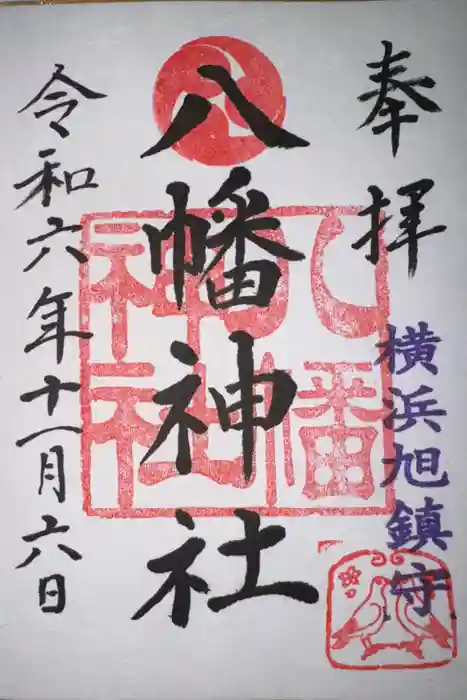 奉拝
横浜旭鎮守
八幡神社
八幡神社
令和六年十一月六日